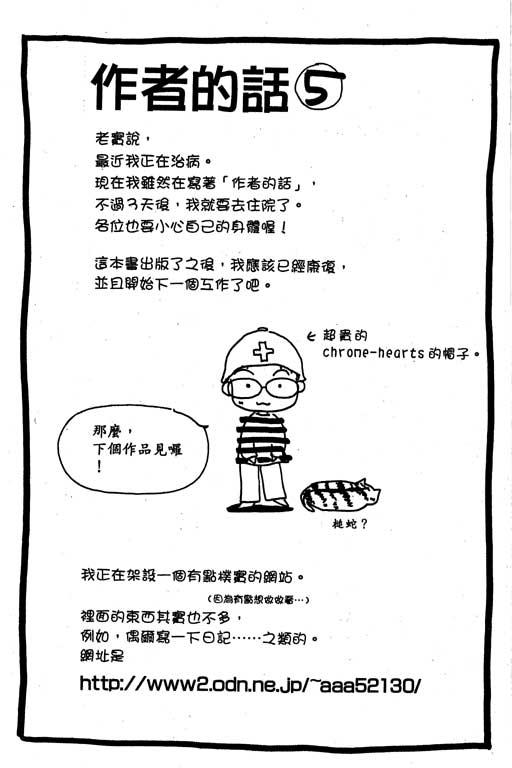 作者的話⑤
老實說，
最近我正在治病。
現在我雖然在寫著「作者的話」，
不過3天後，我就要去住院了。
各位也要小心自己的身體喔！
這本書出版了之後，我應該已經康復，
並且開始下一個工作了吧。
← 超貴的
chrome-hearts的帽子。
那麼，
下個作品見囉
！
槌蛇？
我正在架設一個有點樸實的網站。
(因為有點想做做看…)
裡面的東西其實也不多，
例如，偶爾寫一下日記……之類的。
網址是
http://www2.odn.ne.jp/~aaa52130/